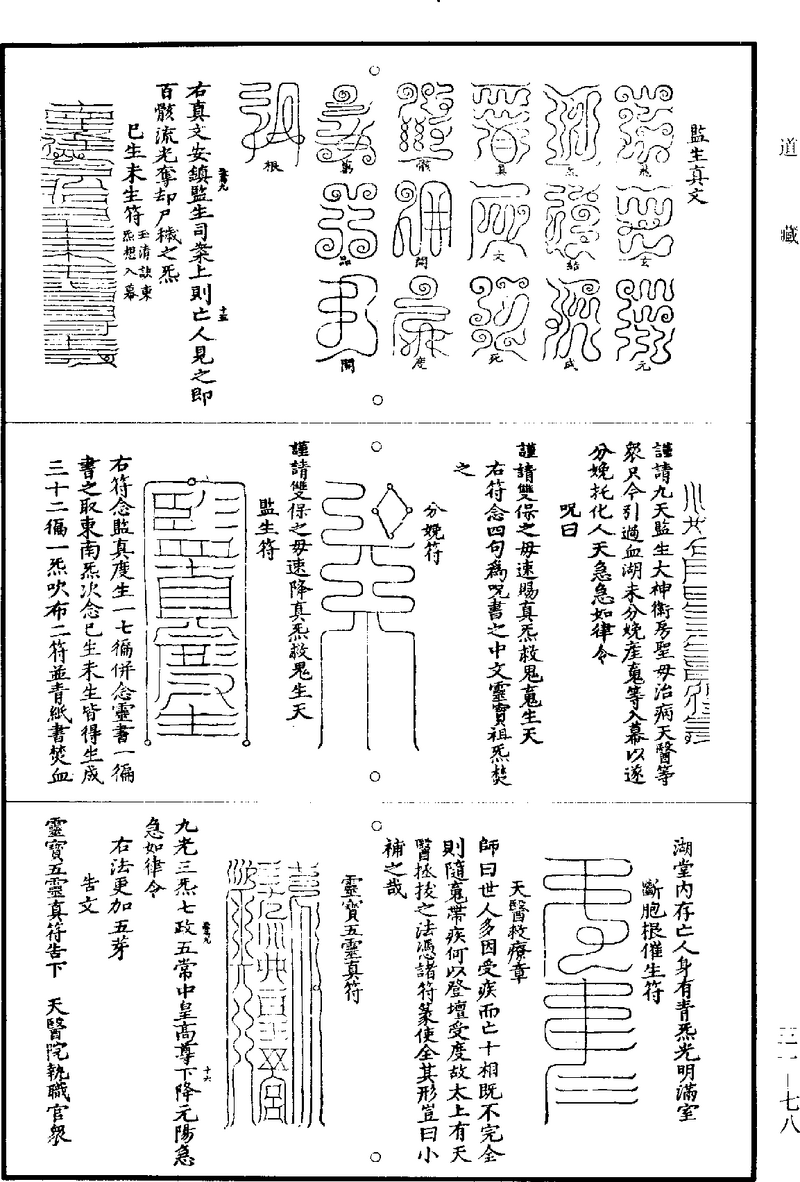 道藏
三一—七八
監生真文
飛玄元
結成
真文死
骸開度
品
根
右真文安鎮監生司案上則亡人見之即
十五
百骸流光奪却尸穢之炁
已生未生符
玉清訣東
炁想入幕
謹請九天監生大神衛房聖母治病天醫等
衆只今引過血湖未分娩產䰟等入幕以遂
分娩托化人天急急如律令
呪曰
謹請雙保之母速賜真炁救䰟䰟生天
右符念四句爲呪書之中文靈寶祖炁焚
之
分娩符
謹請雙保之母速降真炁救䰟生天
監生符
右符念監真度生一七徧併念靈書一徧
書之取東南炁次念已生未生皆得生成
三十二徧一炁吹布二符並青紙書焚血
湖堂內存亡人身有青炁光明滿室
斷胞根催生符
天醫救療章
師曰世人多因受疾而亡十相既不完全
則隨䰟帶疾何以登壇受度故太上有天
醫拯拔之法憑諸符篆使全其形豈曰小
補之哉
靈寶五靈真符
九光三炁七政五常中皇高尊下降元陽急
十六
急如律令
右法更加五芽
告文
靈寶五靈真符告下　天醫院執職官衆